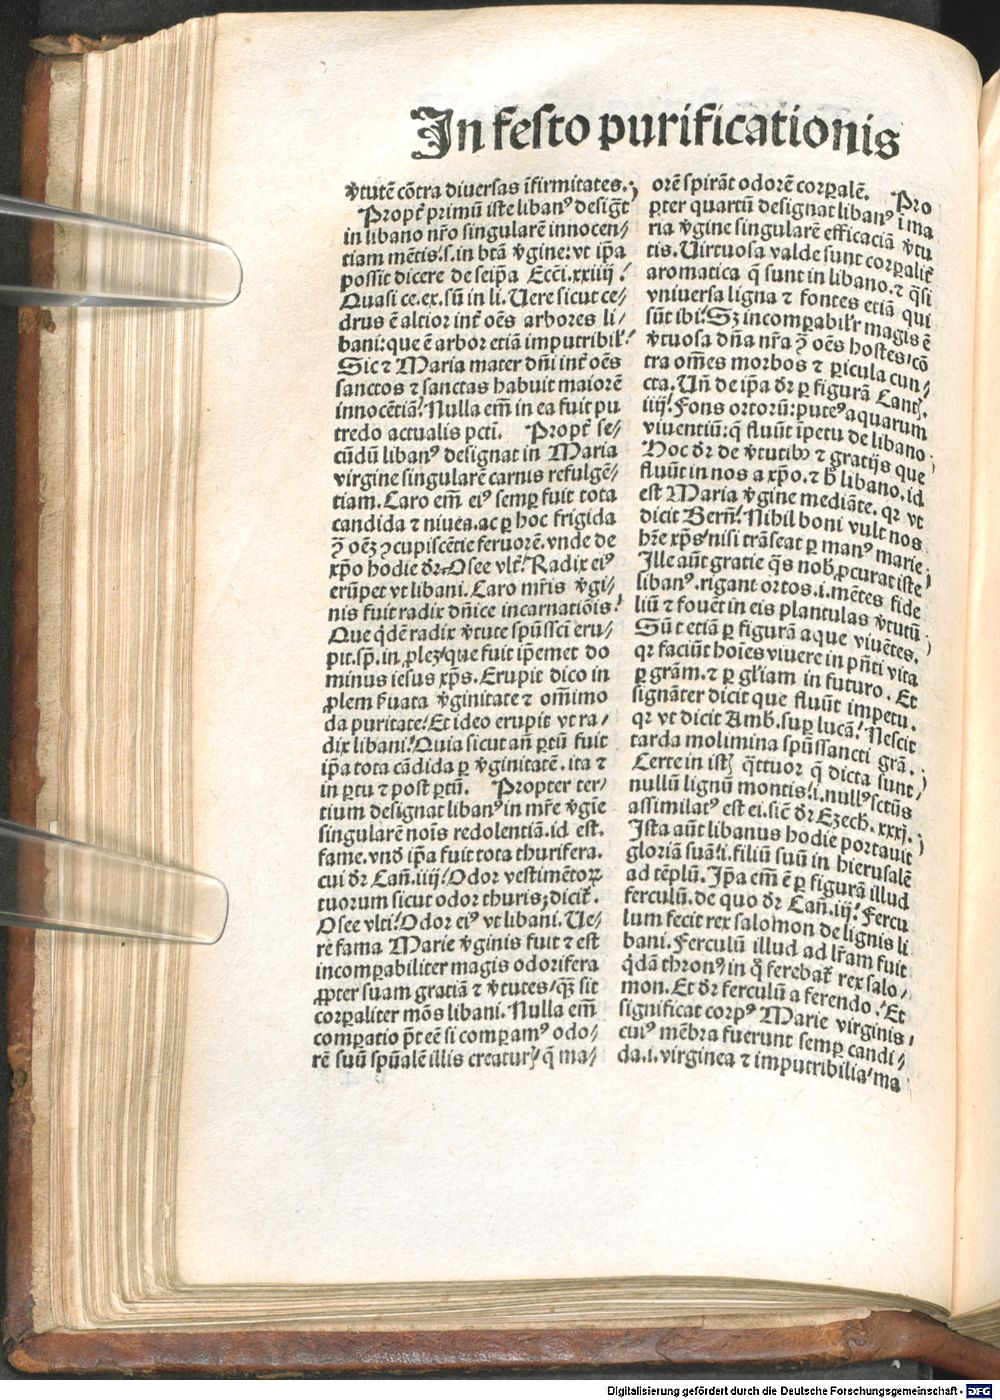 In festo purificationis
v̾tutē cōtra diuersas īfirmitates.
Propt̄ primū iste liban⁹ desigt̄
in libano nr̄o singularē innocen⸗
tiam mētis:.s.in btā v̾gine: vt ip̄a
possit dicere de seip̄a Ecci.xxiiij:
Quasi ce.ex.sū in li. Uere sicut ce⸗
drus ē altior int̄ oēs arbores li⸗
bani: que ē arbor etiā imputribil̄:
Sic ⁊ Maria mater dn̄i int̄ oēs
sanctos ⁊ sanctas habuit maiorē
innocētiā: Nulla em̄ in ea fuit pu
tredo actualis pcti. Propt̄ se⸗
cūdū liban⁹ designat in Maria
virgine singularē carnis refulgē⸗
tiam. Caro em̄ ei⁹ semꝑ fuit tota
candida ⁊ niuea. ac ꝑ hoc frigida
ꝯ̄ oēꝫ ꝯcupiscētie feruorē. vnde de
xp̄o hodie dr̄. Osee vlt̄: Radix ei⁹
erūpet vt libani. Caro mr̄is v̾gi⸗
nis fuit radix dn̄ice incarnatiōis:
Que q̇dē radix v̾tute spūssci̅ eru⸗
pit.sp̄. in ꝓlez/que fuit ip̄emet do
minus iesus xp̄s. Erupit dico in
ꝓlem ẜuata v̾ginitate ⁊ om̄imo
da puritate: Et ideo erupit vt ra⸗
dix libani: Quia sicut an̄ ꝑtū fuit
ip̄a tota cādida ꝑ v̾ginitatē. ita ⁊
in ꝑtu ⁊ post ꝑtū. Propter ter⸗
tium designat liban⁹ in mr̄e v̾gīe
singularē nois̄ redolentiā. id est.
fame. vnd̄ ip̄a fuit tota thurifera.
cui dr̄ Can̄.iiij: Odor vestimētoꝝ
tuorum sicut odor thuris; dicit̄.
Osee vlti: Odor ei⁹ vt libani. Ue⸗
re fama Marie v̾ginis fuit ⁊ est
incomꝑabiliter magis odorifera
ꝓpter suam gratiā ⁊ v̾tutes/ qꝫ sit
corꝑaliter mōs libani. Nulla em̄
comꝑatio pt̄ eē si comꝑam⁹ odo⸗
rē suū spūalē illis creatur⸗ q̄ ma⸗
orē spirāt odorē corꝑalē. Pro
pter quartū designat liban⁹ i ma
ria v̾gine singularē efficaciā v̾tu
tis. Uirtuosa valde sunt corꝑalit̄
aromatica q̄ sunt in libano. ⁊ q̄si
vniuersa ligna ⁊ fontes etiā qui
sūt ibi: Sꝫ incomꝑabilr̄ magis ē
v̾tuosa dn̄a nr̄a ꝯ̄ oēs hostes/cō
tra om̄es morbos ⁊ ꝑicula cun⸗
cta. Un̄ de ip̄a dr̄ ꝑ figurā Cant⸗.
iiij: Fons ortorū: pute⁹ aquarum
viuentiū: q̄ fluūt īpetu de libano
Hoc dr̄ de v̾tutibꝰ ⁊ gratijs que
fluūt in nos a xp̄o. ⁊ b̄ libano. id
est Maria v̾gine mediāte. qr vt
dicit Bern̄: Nihil boni vult nos
hr̄e xp̄s/ nisi trāseat ꝑ man⁹ marie
Ille aūt gratie q̄s nob̄ ꝓcurat iste
liban⁹. rigant ortos.i.mētes fide
liū ⁊ fouēt in eis plantulas v̾tutū
Sūt etiā ꝑ figurā aque viuētes.
qr faciūt hoīes viuere in pn̄ti vita
ꝑ grām. ⁊ ꝑ gl̄iam in futuro. Et
signāter dicit que fluūt impetu.
qr vt dicit Amb. suꝑ lucā: Nescit
tarda molimina spūssancti grā.
Certe in ist⸗ q̄ttuor q̄ dicta sunt
nullū lignū montis:.i.null⁹ sctūs
assimilat⁹ est ei. sic̄ dr̄ Ezech. xxxj.
Ista aūt libanus hodie portauit
gloriā suā:.i. filiū suū in hierusalē
ad tēplū. Ip̄a em̄ ē ꝑ figurā illud
ferculū. de quo dr̄ Can̄.iij: Fercu
lum fecit rex salomon de lignis li
bani. Ferculū illud ad lr̄am fuit
q̇dā thron⁹/ in q̊ ferebat̄ rex salo⸗
mon. Et dr̄ ferculū a ferendo: Et
significat corp⁹ Marie virginis
cui⁹ mēbra fuerunt semꝑ candi⸗
da.i. virginea ⁊ imputribilia/ ma
Digitalisierung gefördert durch die Deutsche Forschungsgemeinschaft - DFG